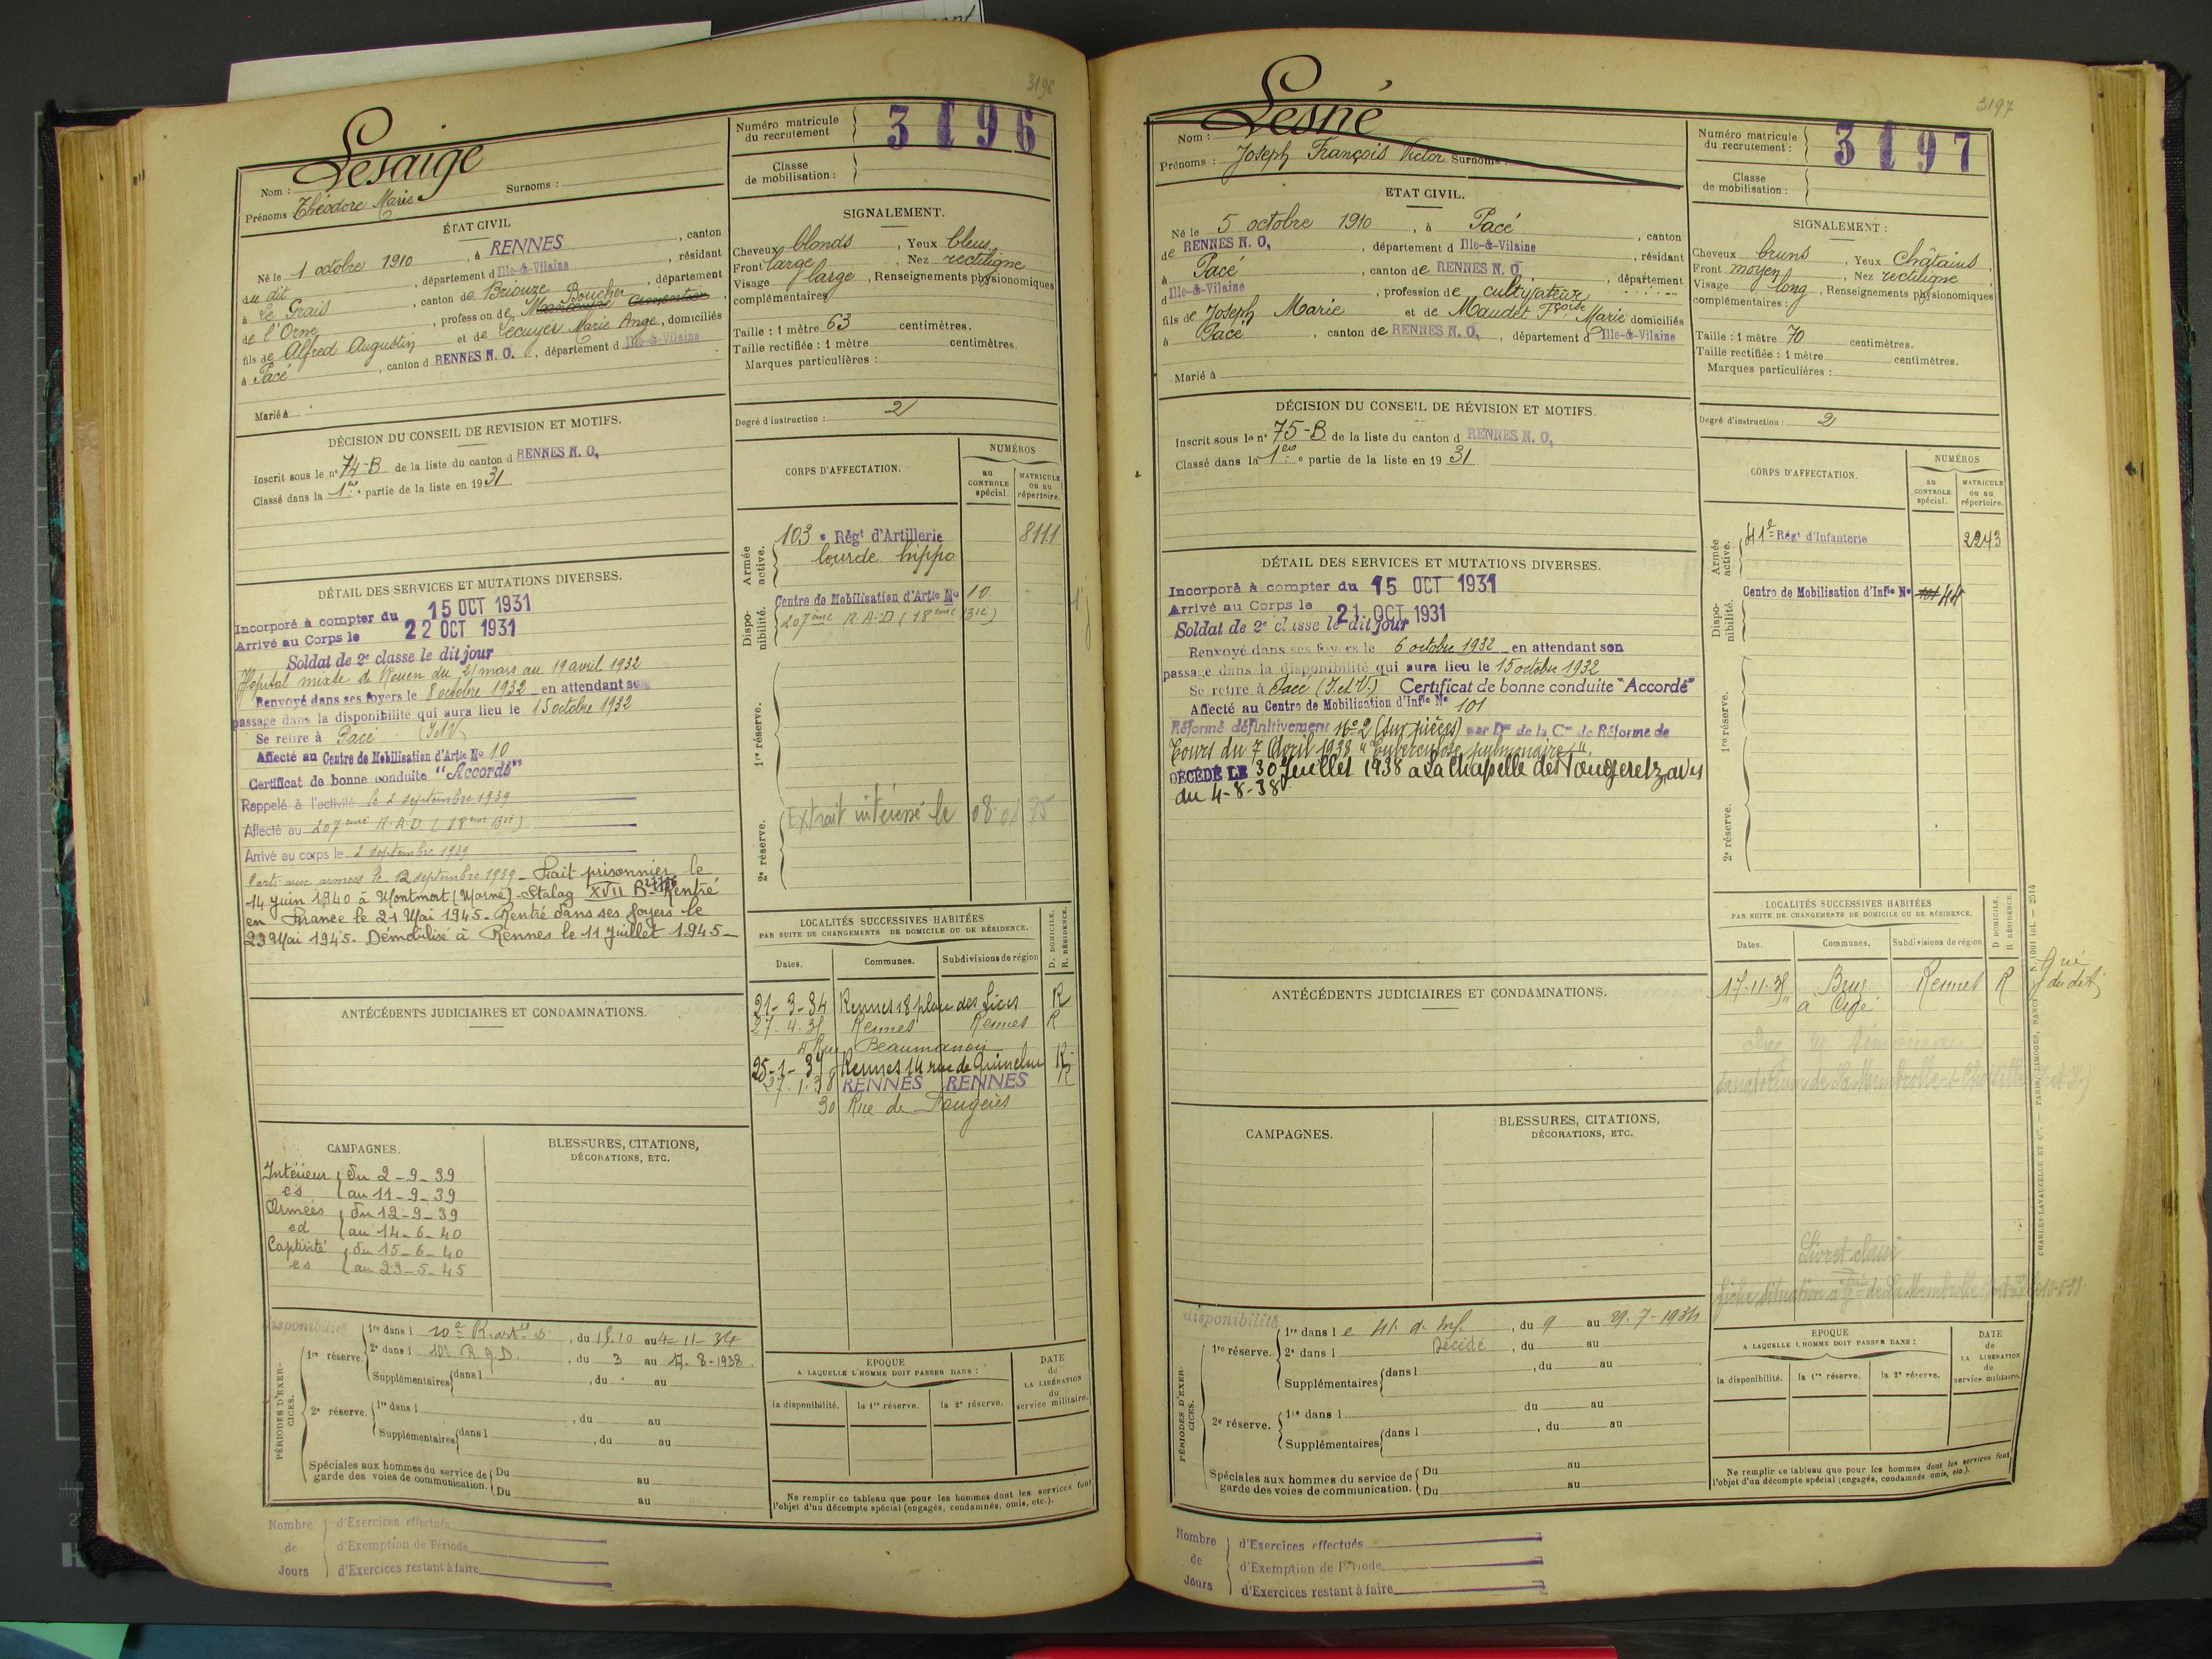 3196
Nom : Lesaige
Prénoms : Théodore Marie Surnoms :
Numéro matricule du recrutement 3196
Classe de mobilisation :
ÉTAT CIVIL
Né le 1 octobre 1910, à RENNES, canton
du dit, département d Ille-&-Vilaine, résidant
à Le Grais, canton de Briouze, département
de l'Orne, profession de Boucher
fils de Alfred Augustin et de Lecuyer Marie Ange, domiciliés
à Pacé, canton d RENNES N. O., département d Ille-&-Vilaine
Marié à
SIGNALEMENT.
Cheveux blonds, Yeux bleus
Front large, Nez rectiligne
Visage large, Renseignements physionomiques
complémentaires
Taille : 1 mètre 63 centimètres.
Taille rectifiée : 1 mètre centimètres.
Marques particulières :
Degré d'instruction : 2
DÉCISION DU CONSEIL DE REVISION ET MOTIFS.
Inscrit sous le n° 74-B de la liste du canton d RENNES N. O.
Classé dans la 1ere partie de la liste en 1931.
DÉTAIL DES SERVICES ET MUTATIONS DIVERSES.
Incorporé à compter du 15 OCT 1931
Arrivé au Corps le 22 OCT 1931
Soldat de 2e classe le dit jour
Hôpital mixte de Rouen du 21 mars au 19 avril 1932
Renvoyé dans ses foyers le 8 octobre 1932 en attendant son
passage dans la disponibilité qui aura lieu le 15 octobre 1932
Se retire à Pacé (I&V)
Affecté au Centre de Mobilisation d'Artie No 10
Certificat de bonne conduite "Accordé"
Rappelé à l'activité le 2 septembre 1939
Affecté au 207ème R.A.D (18eme Bie)
Arrivé au corps le 2 septembre 1939
Parti aux armées le 12 septembre 1939 - Fait prisonnier le
14 Juin 1940 à Montmort (Marne) - Stalag XVII B - Rentré
en France le 21 Mai 1945 - Rentré dans ses foyers le
23 Mai 1945. Démobilisé à Rennes le 11 Juillet 1945 -
CORPS D'AFFECTATION.
NUMÉROS
au CONTROLE spécial.
MATRICULE ou au répertoire.
Armée active.
103e Régt d'Artillerie 8111
lourde hippo
Disponibilité.
Centre de Mobilisation d'Artie No 10
207ème R.A.D (18eme Bie)
1re réserve.
2e réserve.
Extrait intéressé le 08.01.75
LOCALITÉS SUCCESSIVES HABITÉES
PAR SUITE DE CHANGEMENTS DE DOMICILE OU DE RÉSIDENCE.
Dates. Communes. Subdivisions de région D. DOMICILE. R. RÉSIDENCE.
21-3-34 Rennes 18 place des Lices R
Rennes Rennes R
Rue Beaumanoir
Rennes 14 rue de R
27.1.38 RENNES RENNES R
30 Rue de Fougères
ANTÉCÉDENTS JUDICIAIRES ET CONDAMNATIONS.
CAMPAGNES.
Intérieur du 2-9-39
cs au 11-9-39
Armées du 12-9-39
cd au 14-6-40
Captivité du 15-6-40
cs au 23-5-45
BLESSURES, CITATIONS, DÉCORATIONS, ETC.
disponibilité
PÉRIODES D'EXERCICES.
1re réserve. 1re dans l , du 15.10 au 4-11-34
2e dans l 10e R.A.D., du 3 au 17-8-1938.
Supplémentaires dans l , du au
2e réserve. 1re dans l , du au
Supplémentaires dans l , du au
Spéciales aux hommes du service de garde des voies de communication. Du au
Du au
EPOQUE
A LAQUELLE L'HOMME DOIT PASSER DANS :
la disponibilité. la 1re réserve. la 2e réserve.
DATE de LA LIBÉRATION du service militaire.
Ne remplir ce tableau que pour les hommes dont les services font
l'objet d'un décompte spécial (engagés, condamnés, omis, etc.).
Nombre de Jours
d'Exercices effectués
d'Exemption de Période
d'Exercices restant à faire
3197
Nom : Lesné
Prénoms : Joseph François Victor Surnoms :
Numéro matricule du recrutement : 3197
Classe de mobilisation :
ETAT CIVIL.
Né le 5 octobre 1910, à Pacé, canton
de RENNES N. O., département d Ille-&-Vilaine, résidant
à Pacé, canton de RENNES N. O., département
d Ille-&-Vilaine, profession de cultivateur
fils de Joseph Marie et de Maudet Fçoise Marie domiciliés
à Pacé, canton de RENNES N. O., département d Ille-&-Vilaine
Marié à
SIGNALEMENT :
Cheveux bruns, Yeux châtains,
Front moyen, Nez rectiligne,
Visage long, Renseignements physionomiques
complémentaires :
Taille : 1 mètre 70 centimètres.
Taille rectifiée : 1 mètre centimètres.
Marques particulières :
Degré d'instruction : 2
DÉCISION DU CONSEIL DE RÉVISION ET MOTIFS.
Inscrit sous le n° 75-B de la liste du canton d RENNES N. O.
Classé dans la 1ere partie de la liste en 1931.
DÉTAIL DES SERVICES ET MUTATIONS DIVERSES.
Incorporé à compter du 15 OCT 1931
Arrivé au Corps le 21 OCT 1931
Soldat de 2e classe le dit jour
Renvoyé dans ses foyers le 6 octobre 1932 en attendant son
passage dans la disponibilité qui aura lieu le 15 octobre 1932
Se retire à Pacé (I.et V.) Certificat de bonne conduite "Accordé"
Affecté au Centre de Mobilisation d'Infie No 101
Réformé définitivement No 2 (sur pièces) par Don de la Con de Réforme de
Tours du 7 Avril 1938 "Tuberculose pulmonaire".
DÉCÉDÉ LE 30 Juillet 1938 à La Chapelle des Fougeretz, avis
du 4-8-38
CORPS D'AFFECTATION.
NUMÉROS
au CONTROLE spécial.
MATRICULE ou au répertoire.
Armée active.
41e Régt d'Infanterie 2243
Disponibilité.
Centre de Mobilisation d'Infie No 101 44
1re réserve.
2e réserve.
LOCALITÉS SUCCESSIVES HABITÉES
PAR SUITE DE CHANGEMENTS DE DOMICILE OU DE RÉSIDENCE.
Dates. Communes. Subdivisions de région D DOMICILE. R RÉSIDENCE
Bruz Rennes R
à Cicé
Sanatorium de La Membrolle
ANTÉCÉDENTS JUDICIAIRES ET CONDAMNATIONS.
CAMPAGNES.
BLESSURES, CITATIONS, DÉCORATIONS, ETC.
Livret classé
disponibilité
PÉRIODES D'EXERCICES.
1re réserve. 1re dans l e 41 R. Inf., du 9 au 29.7-1934
2e dans l Décédé, du au
Supplémentaires dans l , du au
2e réserve. 1re dans l du au
Supplémentaires dans l , du au
Spéciales aux hommes du service de garde des voies de communication. Du au
Du au
EPOQUE
A LAQUELLE L'HOMME DOIT PASSER DANS :
la disponibilité. la 1re réserve. la 2e réserve.
DATE de LA LIBÉRATION du service militaire.
Ne remplir ce tableau que pour les hommes dont les services font
l'objet d'un décompte spécial (engagés, condamnés, omis, etc.).
CHARLES-LAVAUZELLE ET Cie. — PARIS, LIMOGES, NANCY
Nombre de Jours
d'Exercices effectués
d'Exemption de Période
d'Exercices restant à faire